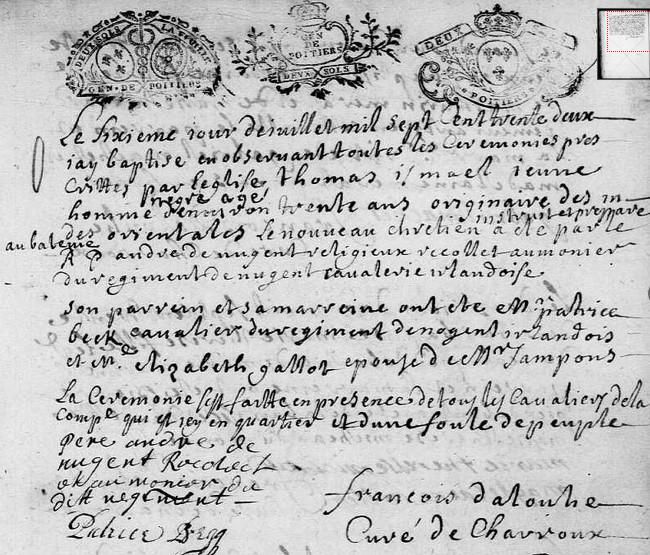 DEUX SOLS LA FEUILLE
GEN · DE POITIERS
GEN
DE
POITIERS
DEUX SOLS
DEUX
POITIERS
Le sixieme jour de juillet mil sept cent trente deux
jay baptise en observant toutes les Ceremonies pres
crittes par leglise, thomas ismael jeune
negre agé
homme denviron trente ans originaire des in
instruit et preparé
des orientales le nouveau chretien a été par le
au bateme
R P andre de nugent religieux recollet aumonier
du regiment de nugent cavalerie irlandoise
son parrein et sa marreine ont ete Mr patrice
beck cavalier du regiment de nogent irlandois
et Me elizabeth gallot epouse de Mr Jampons
La Ceremonie sest faitte en presence de tous les Cavaliers de la
Compe qui est icy en quartier et dune foule de peuple
pere andré de
nugent Recolect
aumonier du
ditt regement
francois dalouhe
Patrice Begg
Curé de Charroux